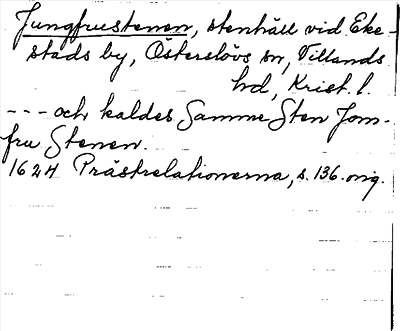 Jungfrustenen, stenhäll vid Eke-
stads by, Österslövs sn, Villands
hd, Krist. l.
--- och kaldes Samme Sten Jom-
fru Stenen.
1624 Prästrelationerna, s. 136. orig.